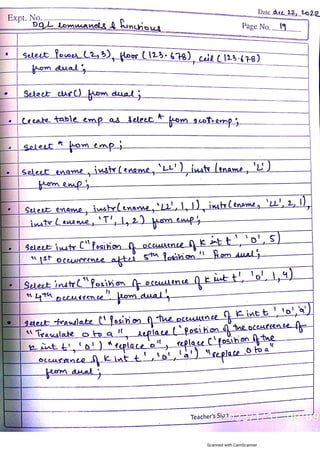 Date Dec 22, 2022
Expt. No.
DQL commands & functions
Page No. 19
Select Power (2,3), floor (123.678), ceil (123.678)
from dual;
Select chr() from dual;
Create table emp as select * from scott.emp;
Select * from emp;
Select ename, instr(ename, 'LL'), instr(ename, 'L')
from emp;
Select ename, instr(ename, 'LL', 1, 1), instr(ename, 'LL', 2, 1),
instr(ename, 'T', 1, 2) from emp;
Select instr ('Position of occurence of K int t', 'O', 5)
"1st occurrence after 5th Position" from dual;
Select instr('Position of occurence of K int t', 'o', 1, 4)
"4th occurrence" from dual;
Select translate ('Position of the occurence of K int t', 'o', 'a')
"Translate o to a", replace ('Position of the occurence of
K int t', 'o') "replace o", replace ('Position of the
occurence of K int t', 'o', 'a') "replace o to a"
from dual;
Teacher's
Scanned with CamScanner